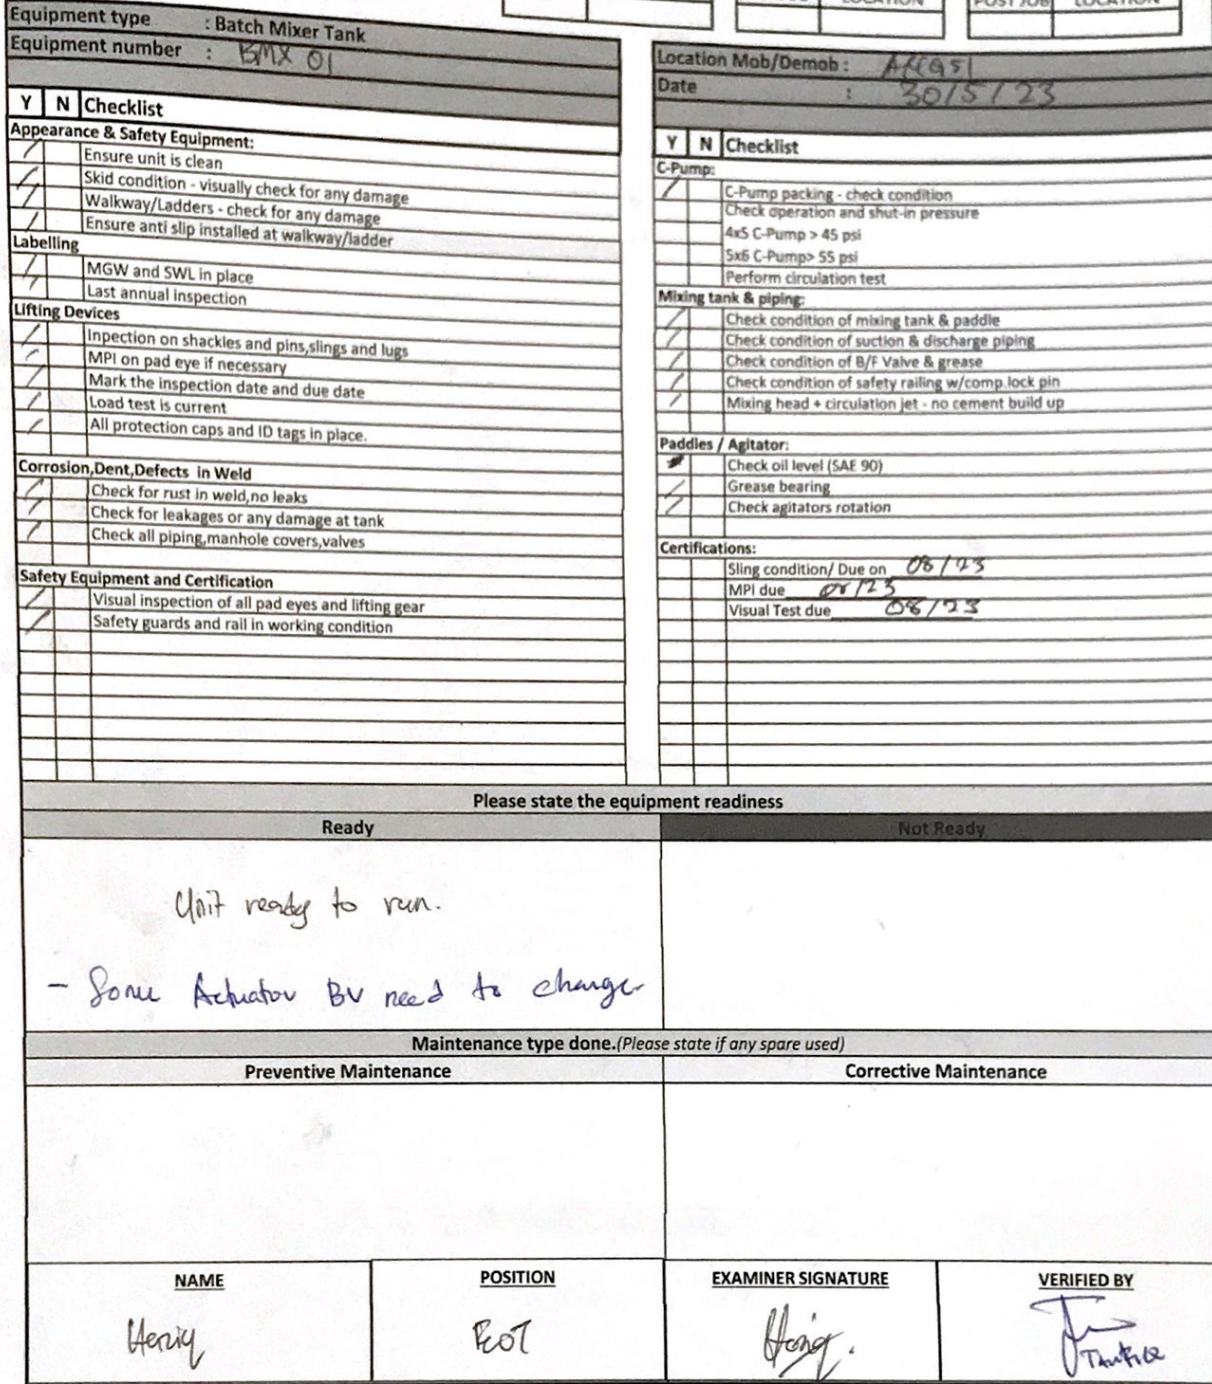 LOCATION
POST JOB
LOCATION
Equipment type : Batch Mixer Tank
Equipment number : BMX 01
Y N Checklist
Appearance & Safety Equipment:
Ensure unit is clean
Skid condition - visually check for any damage
Walkway/Ladders - check for any damage
Ensure anti slip installed at walkway/ladder
Labelling
MGW and SWL in place
Last annual inspection
Lifting Devices
Inpection on shackles and pins,slings and lugs
MPI on pad eye if necessary
Mark the inspection date and due date
Load test is current
All protection caps and ID tags in place.
Corrosion,Dent,Defects in Weld
Check for rust in weld,no leaks
Check for leakages or any damage at tank
Check all piping,manhole covers,valves
Safety Equipment and Certification
Visual inspection of all pad eyes and lifting gear
Safety guards and rail in working condition
Location Mob/Demob :
Date : 30/5/23
Y N Checklist
C-Pump:
C-Pump packing - check condition
Check operation and shut-in pressure
4x5 C-Pump > 45 psi
5x6 C-Pump> 55 psi
Perform circulation test
Mixing tank & piping:
Check condition of mixing tank & paddle
Check condition of suction & discharge piping
Check condition of B/F Valve & grease
Check condition of safety railing w/comp.lock pin
Mixing head + circulation jet - no cement build up
Paddles / Agitator:
Check oil level (SAE 90)
Grease bearing
Check agitators rotation
Certifications:
Sling condition/ Due on 08/23
MPI due
Visual Test due 08/23
Please state the equipment readiness
Ready
Not Ready
Unit ready to run.
- Some Actuator BV need to change
Maintenance type done.(Please state if any spare used)
Preventive Maintenance
Corrective Maintenance
NAME
POSITION
EXAMINER SIGNATURE
VERIFIED BY